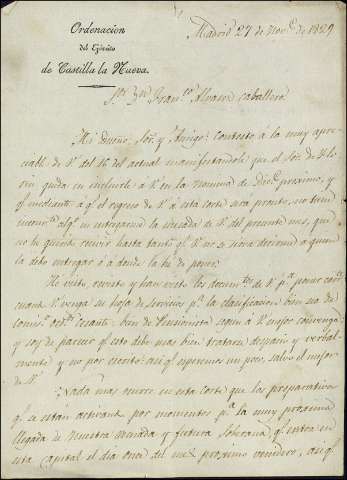 Ordenacion
del Ejército
de Castilla la Nueva.
Madrid 27 de Nov.e de 1829
S.or D.n Fran.co Alvarez Caballero
Mi Dueño, Sor. y Amigo: Contesto á la muy apre-
ciable de V. del 16 del actual manifestandole que el Sor. de
queda en incluirle á V. en la nomina de Dic.e proximo, y
q.e mediante á q.e el regreso de V. á esta corte será pronto, no tiene
en entregarme la mesada de V. del presente mes, que
no hé querido recivir hasta tanto q.e V. no se sirva decirme a quien
la debo entregar ó á donde la hé de poner.
He visto, revisto y han visto los docum.tos de V. p.a poner
cuando V. venga su hoja de servicios p.a la clasificacion bien sea de
Comis.o cesante, bien de Pensionista segun á V. mejor convenga:
y soy de parecer q.e esto debe mas bien tratarse despacio y verbal-
mente y no por escrito: asi q.e esperemos un poco, salvo el mejor
de V.
Nada mas ocurre en esta corte que los preparativos
q.e se estan activando por momentos p.a la muy proxima
llegada de nuestra amada y futura Soberana q.e entra en
esta capital el dia once del mes proximo venidero, asi q.e